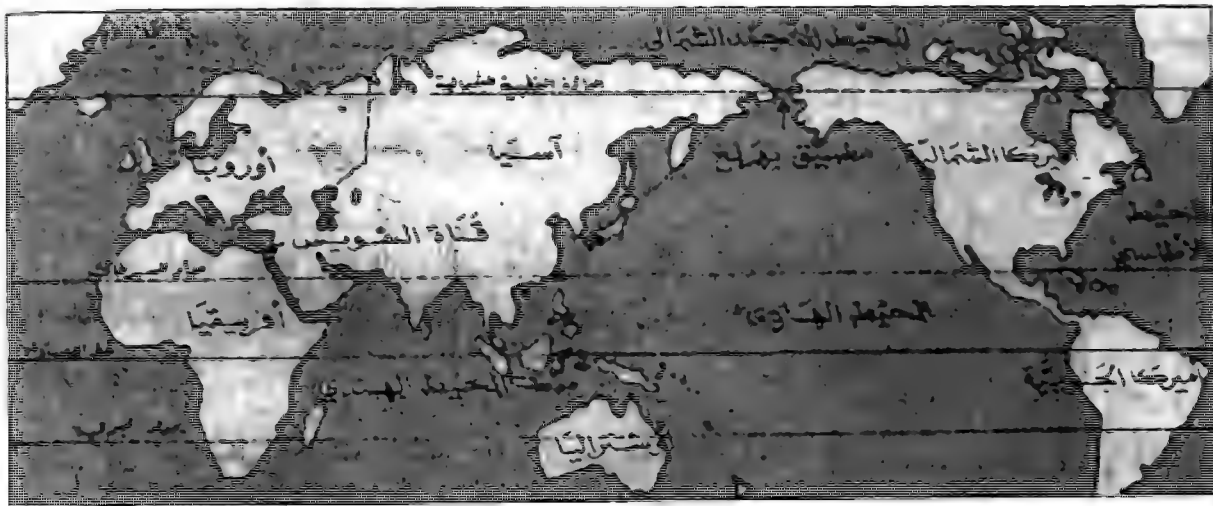 المحيط المتجمد الشمالي
آسيَّا
أوروبا
مضيق بهرنج
أميركا الشمالية
المحيط
الأطلسي
قناة السويس
مدار السرطان
أفريقيَّا
المحيط الهادي
المحيط الهندي
أميركا الجنوبيَّة
أوشتراليَّا